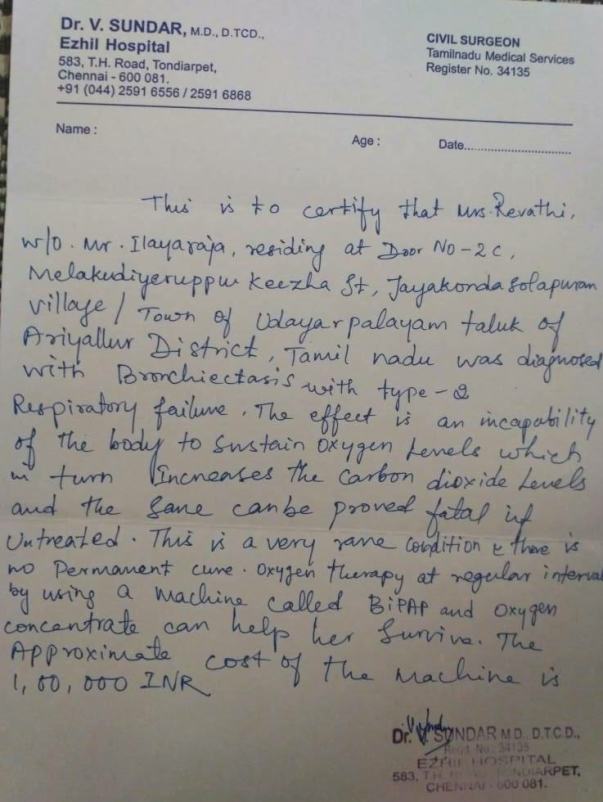 Dr. V. SUNDAR, M.D., D.TCD.,
Ezhil Hospital
583, T.H. Road, Tondiarpet,
Chennai - 600 081.
+91 (044) 2591 6556 / 2591 6868
CIVIL SURGEON
Tamilnadu Medical Services
Register No. 34135
Name :
Age :
Date..............................
This is to certify that Mrs. Revathi,
w/o. Mr. Ilayaraja, residing at Door No-2c,
Melakudiyeruppu Keezha St, Jayakondasolapuram
village / Town of Udayarpalayam taluk of
Ariyallur District, Tamil nadu was diagnosed
with Bronchiectasis with type-2
Respiratory failure. The effect is an incapability
of the body to sustain oxygen levels which
in turn increases the carbon dioxide levels
and the same canbe proved fatal if
untreated. This is a very rare condition & there is
no permanent cure. oxygen therapy at regular interval
by using a machine called BiPAP and oxygen
concentrate can help her survive. The
Approximate cost of the machine is
1,00,000 INR
Dr. V. SUNDAR M.D., D.T.C.D.,
Regd. No.: 34135
EZHIL HOSPITAL
583, T.H. ROAD, TONDIARPET,
CHENNAI - 600 081.